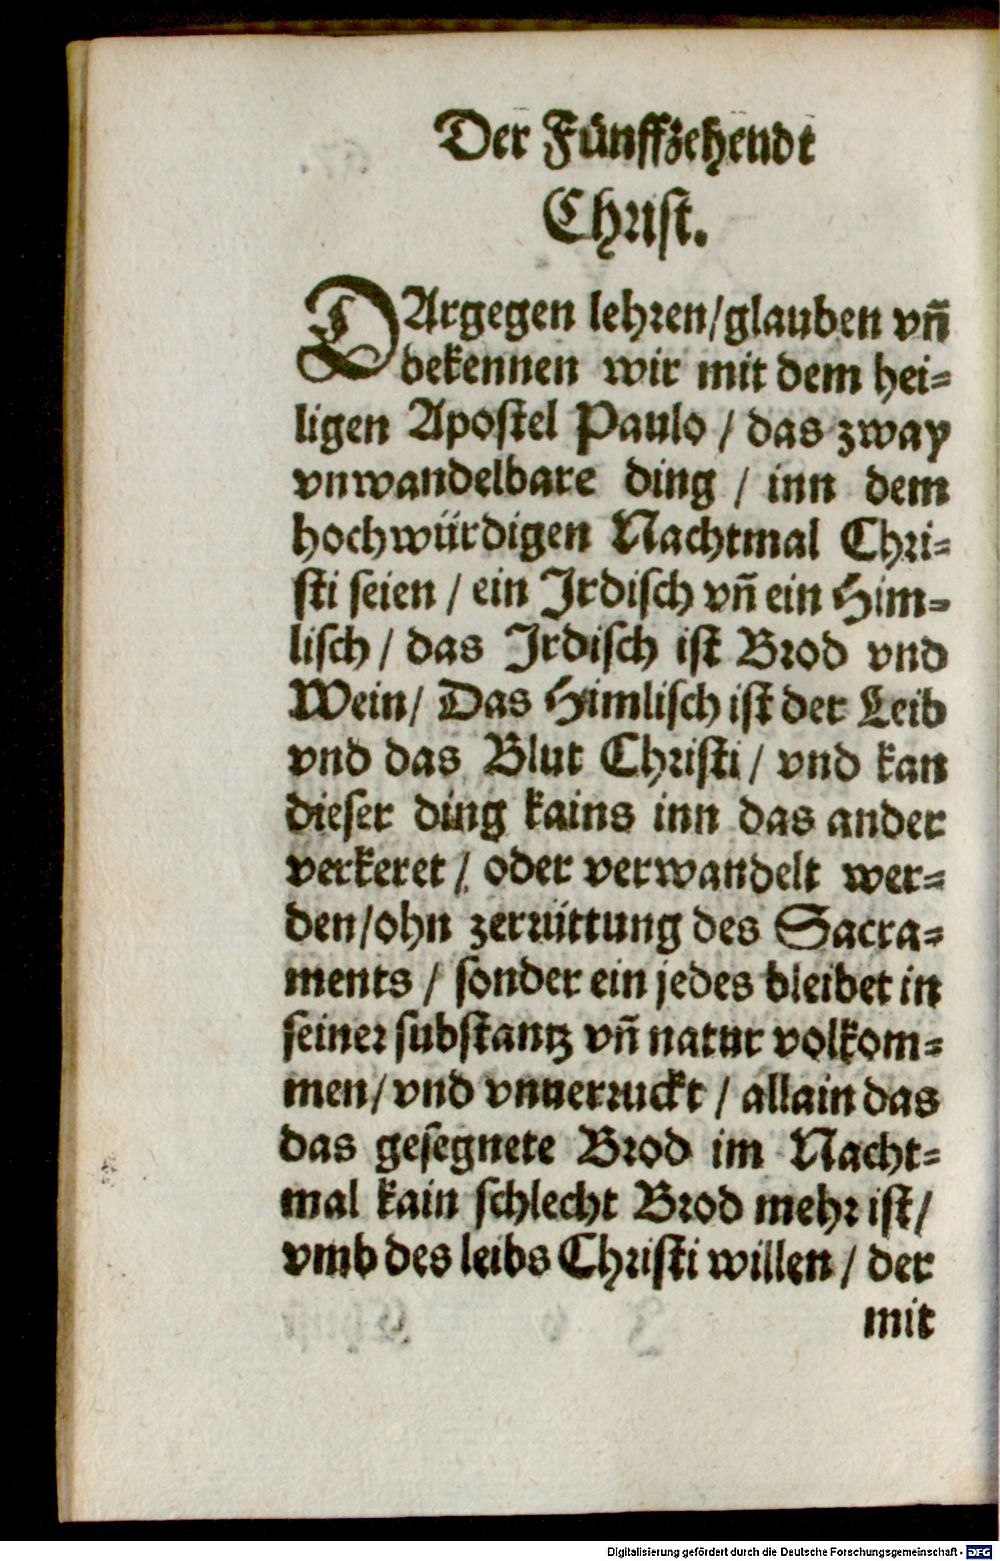 Der Fünffzehendt
Christ.
DArgegen lehren/glauben vñ
bekennen wir mit dem hei=
ligen Apostel Paulo / das zway
vnwandelbare ding / inn dem
hochwürdigen Nachtmal Chri=
sti seien / ein Irdisch vñ ein Him=
lisch / das Irdisch ist Brod vnd
Wein/ Das Himlisch ist der Leib
vnd das Blut Christi / vnd kan
dieser ding kains inn das ander
verkeret / oder verwandelt wer=
den/ohn zerrüttung des Sacra=
ments / sonder ein jedes bleibet in
seiner substantz vñ natur volkom=
men/vnd vnuerruckt / allain das
das gesegnete Brod im Nacht=
mal kain schlecht Brod mehr ist/
vmb des leibs Christi willen / der
mit
Digitalisierung gefördert durch die Deutsche Forschungsgemeinschaft - DFG